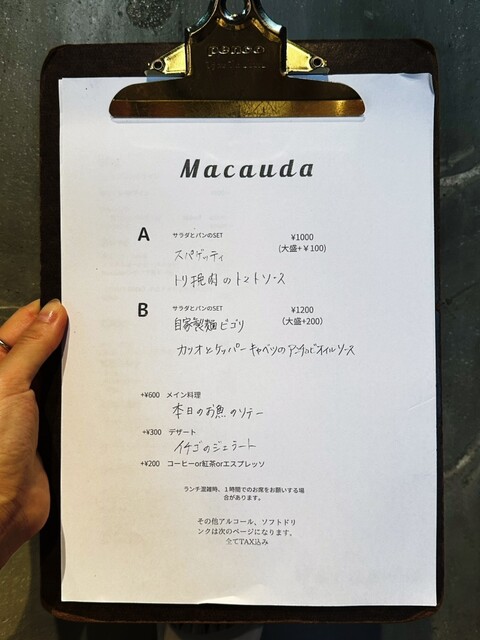 penco
Macauda
A サラダとパンのSET ¥1000
(大盛+￥100)
スパゲッティ
トリ挽肉のトマトソース
B サラダとパンのSET ¥1200
(大盛+200)
自家製麺ビゴリ
カツオとケッパー キャベツのアンチョビオイルソース
+¥600 メイン料理
本日のお魚のソテー
+¥300 デザート
イチゴのジェラート
+¥200 コーヒーor紅茶orエスプレッソ
ランチ混雑時、１時間でのお席をお願いする場
合があります。
その他アルコール、ソフトドリ
ンクは次のページになります。
全てTAX込み